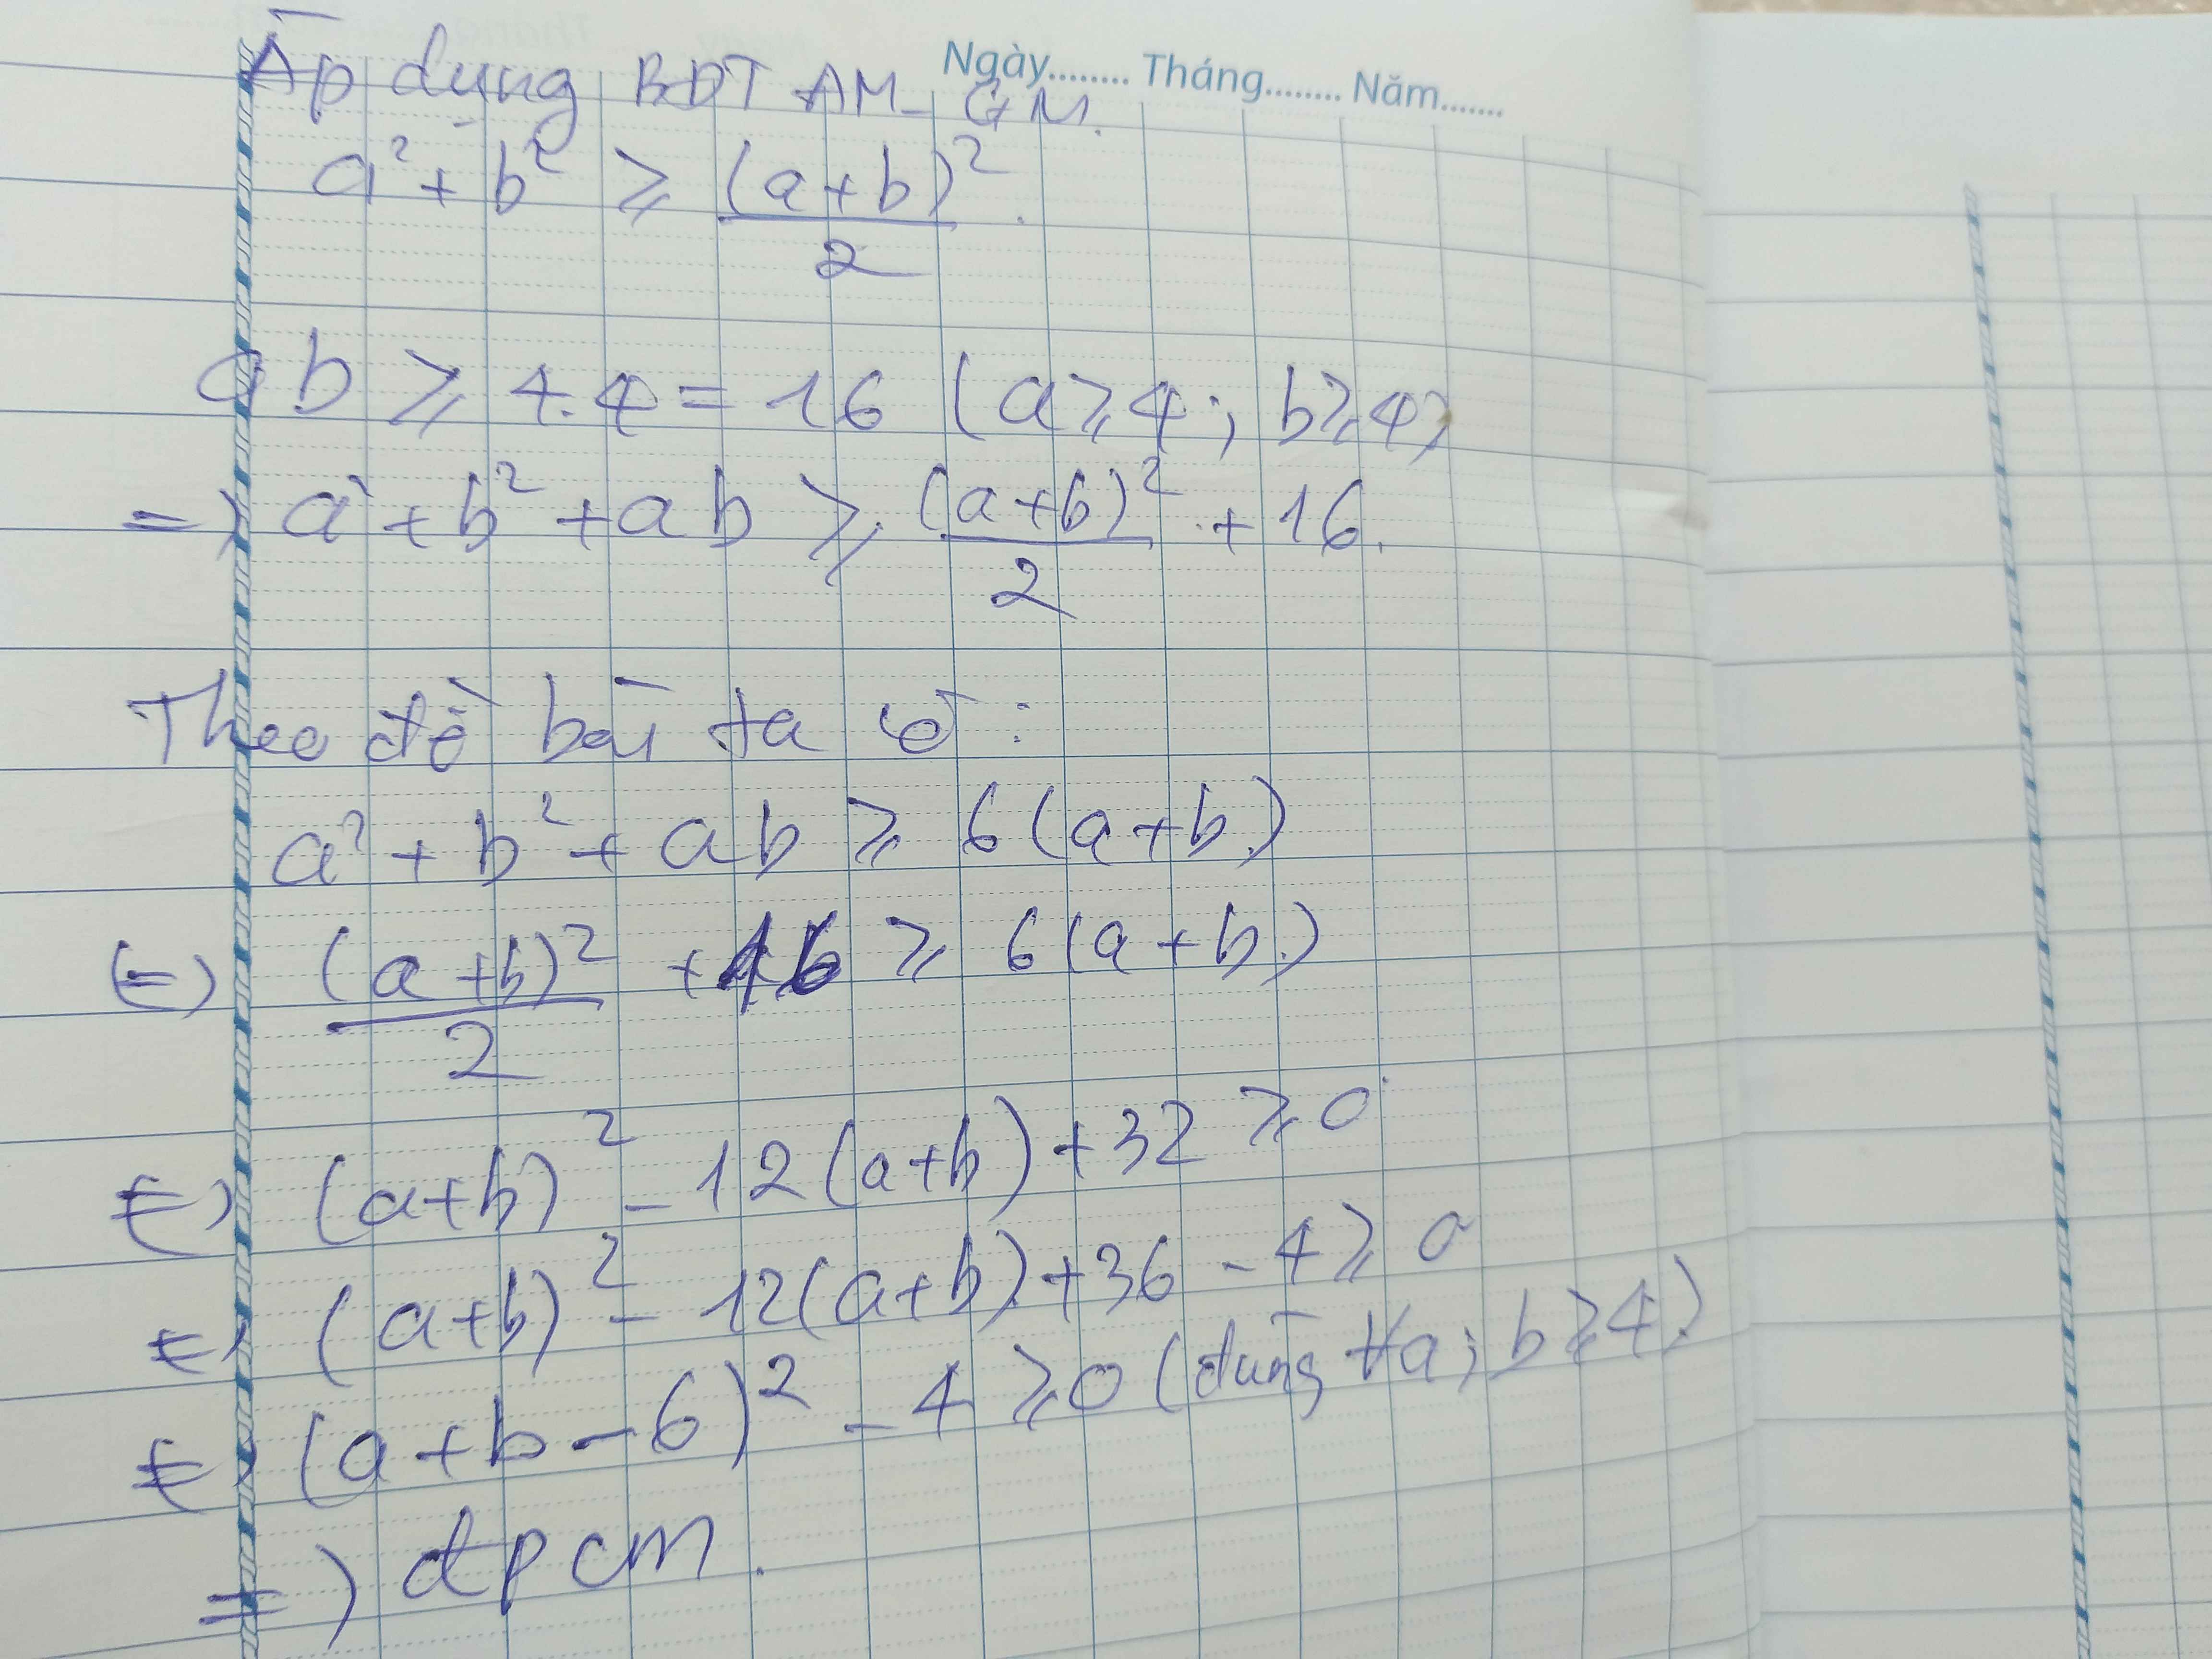 Ngày........ Tháng........ Năm.......
Áp dụng BĐT AM-GM.
a² + b² ≥ (a+b)²/2.
ab ≥ 4.4 = 16 (a≥4; b≥4)
=> a² + b² + ab ≥ (a+b)²/2 + 16.
Theo đề bài ta có:
a² + b² + ab ≥ 6(a+b)
<=> (a+b)²/2 + 16 ≥ 6(a+b)
<=> (a+b)² - 12(a+b) + 32 ≥ 0
<=> (a+b)² - 12(a+b) + 36 - 4 ≥ 0
<=> (a+b-6)² - 4 ≥ 0 (đúng ∀a; b≥4)
=> đpcm.